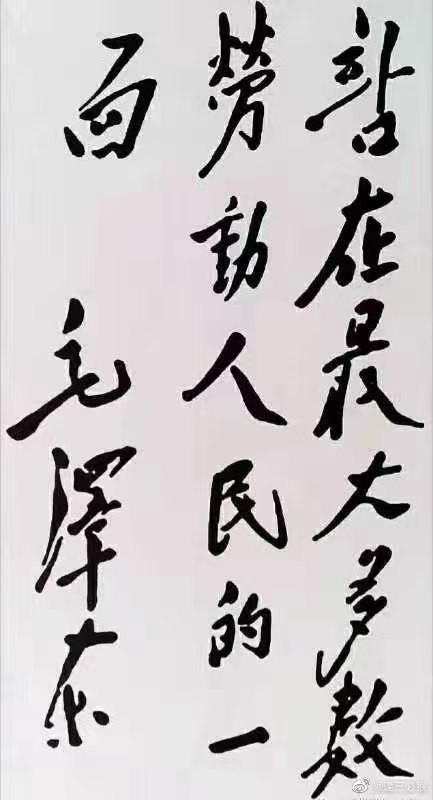 站在最大多数
劳動人民的一
面
毛澤东